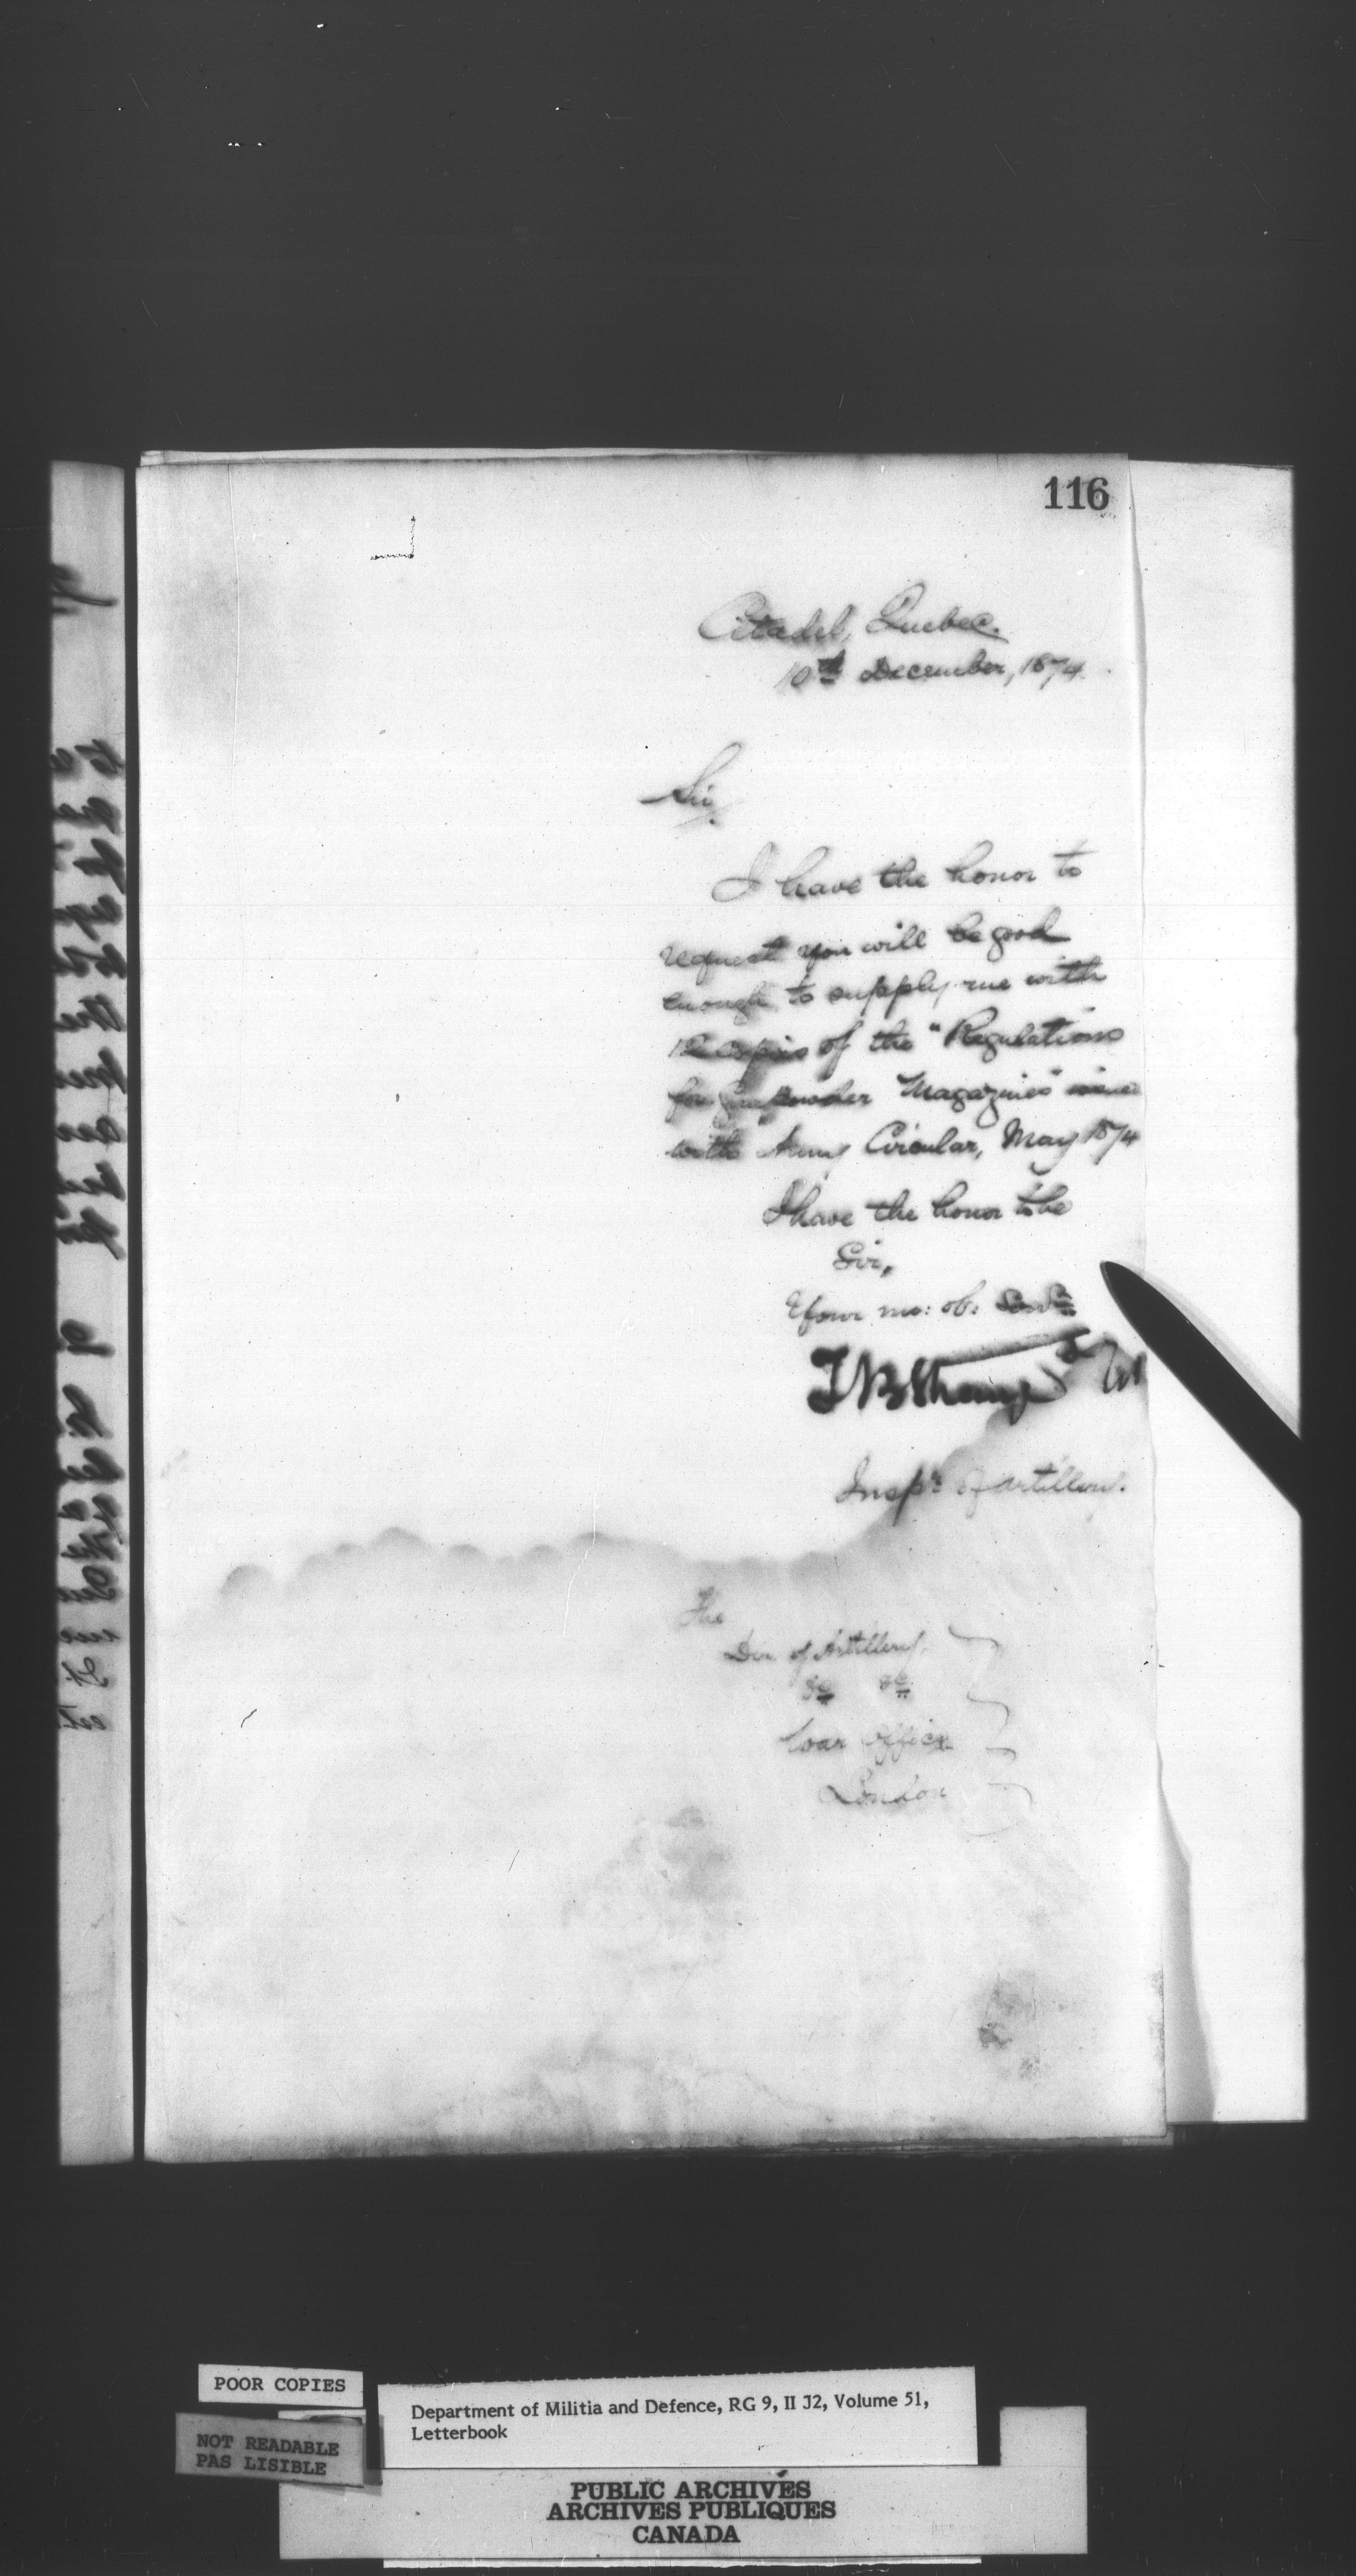 116
Citadel, Quebec.
10th December, 1874.
Sir,
I have the honor to
request you will be good
enough to supply me with
12 copies of the "Regulations
for Gunpowder Magazines" issued
with Army Circular, May 1874
I have the honor to be
Sir,
Your mo: ob: Servt
T B Strange Lt Col
Inspr of Artillery.
The
Dir of Artillery.
&c &c
War Office
London
POOR COPIES
NOT READABLE
PAS LISIBLE
Department of Militia and Defence, RG 9, II J2, Volume 51,
Letterbook
PUBLIC ARCHIVES
ARCHIVES PUBLIQUES
CANADA